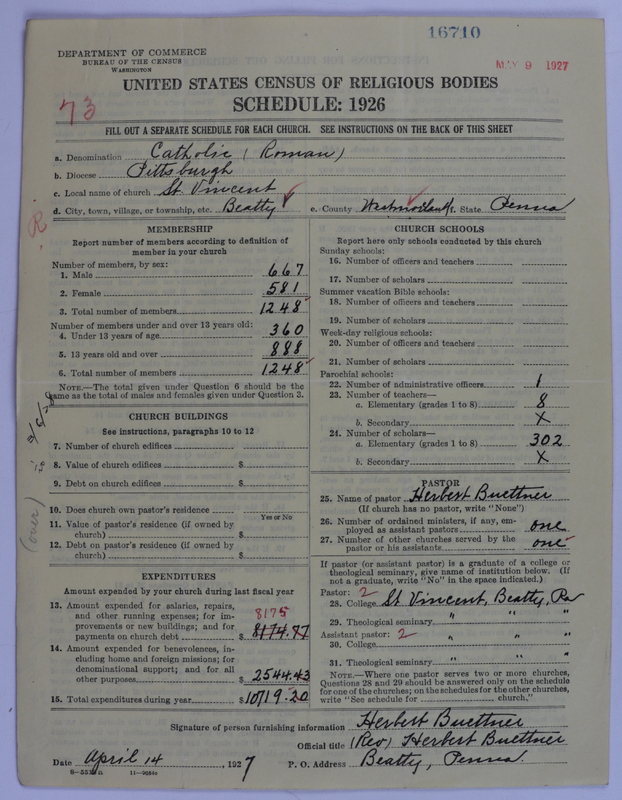 16710
DEPARTMENT OF COMMERCE
BUREAU OF THE CENSUS
WASHINGTON
MAY 9 1927
UNITED STATES CENSUS OF RELIGIOUS BODIES
SCHEDULE: 1926
73
FILL OUT A SEPARATE SCHEDULE FOR EACH CHURCH. SEE INSTRUCTIONS ON THE BACK OF THIS SHEET
a. Denomination Catholic (Roman)
b. Diocese Pittsburgh
c. Local name of church St Vincent
d. City, town, village, or township, etc. Beatty e. County Westmorland f. State Penna
R
MEMBERSHIP
Report number of members according to definition of
member in your church
Number of members, by sex:
1. Male 667
2. Female 581
3. Total number of members 1248
Number of members under and over 13 years old:
4. Under 13 years of age 360
5. 13 years old and over 888
6. Total number of members 1248
NOTE.—The total given under Question 6 should be the
same as the total of males and females given under Question 3.
CHURCH BUILDINGS
See instructions, paragraphs 10 to 12
7. Number of church edifices
8. Value of church edifices $
9. Debt on church edifices $
10. Does church own pastor's residence
Yes or No
11. Value of pastor's residence (if owned by
church) $
12. Debt on pastor's residence (if owned by
church) $
(over)
EXPENDITURES
Amount expended by your church during last fiscal year
13. Amount expended for salaries, repairs,
and other running expenses; for im-
provements or new buildings; and for
payments on church debt $ 8174.77
8175
14. Amount expended for benevolences, in-
cluding home and foreign missions; for
denominational support; and for all
other purposes $ 2544.43
15. Total expenditures during year $ 10719.20
CHURCH SCHOOLS
Report here only schools conducted by this church
Sunday schools:
16. Number of officers and teachers
17. Number of scholars
Summer vacation Bible schools:
18. Number of officers and teachers
19. Number of scholars
Week-day religious schools:
20. Number of officers and teachers
21. Number of scholars
Parochial schools:
22. Number of administrative officers 1
23. Number of teachers—
a. Elementary (grades 1 to 8) 8
b. Secondary X
24. Number of scholars—
a. Elementary (grades 1 to 8) 302
b. Secondary X
PASTOR
25. Name of pastor Herbert Buettner
(If church has no pastor, write "None")
26. Number of ordained ministers, if any, em-
ployed as assistant pastors one
27. Number of other churches served by the
pastor or his assistants one
If pastor (or assistant pastor) is a graduate of a college or
theological seminary, give name of institution below. (If
not a graduate, write "No" in the space indicated.)
Pastor: 2
28. College St Vincent, Beatty, Pa
29. Theological seminary " " "
Assistant pastor: 2
30. College " " "
31. Theological seminary " " "
NOTE.—Where one pastor serves two or more churches,
Questions 28 and 29 should be answered only on the schedule
for one of the churches; on the schedules for the other churches,
write "See schedule for church."
Signature of person furnishing information Herbert Buettner
Official title (Rev) Herbert Buettner
Date April 14, 1927 P. O. Address Beatty, Penna.
11—9684